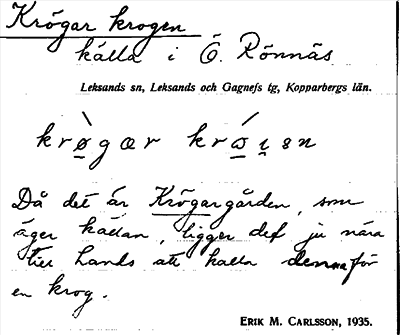 Krögar krogen
källa i Ö. Rönnäs
Leksands sn, Leksands och Gagnefs tg, Kopparbergs län.
Då det är Krögargården, som
äger källan, ligger det ju nära
till hands att kalla denna för
en krog.
ERIK M. CARLSSON, 1935.